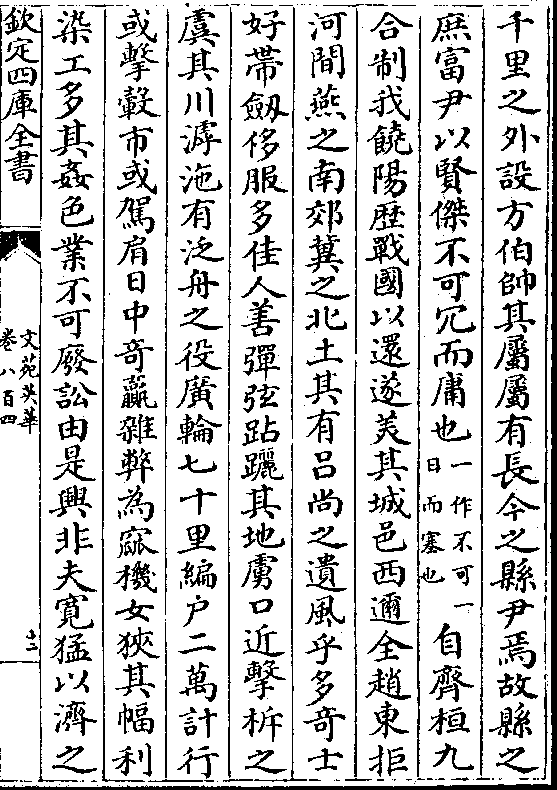 千里之外設方伯帥其屬屬有長今之縣尹焉故縣之
庶富尹以賢傑不可冗而庸也一作不可一日而塞也自齊桓九
合制我饒陽歴戰國以還遂美其城邑西邇全趙東拒
河間燕之南郊冀之北土其有吕尚之遺風乎多竒士
好帶劔侈服多佳人善彈弦跕躧其地虜口近擊柝之
虞其川滹沲有泛舟之役廣輪七十里編户二萬計行
或擊轂市或駕肩日中竒贏雜弊為窳機女狹其幅利
染工多其姦色業不可廢訟由是興非夫寛猛以濟之
欽定四庫全書
文苑英華
卷八百四
十二